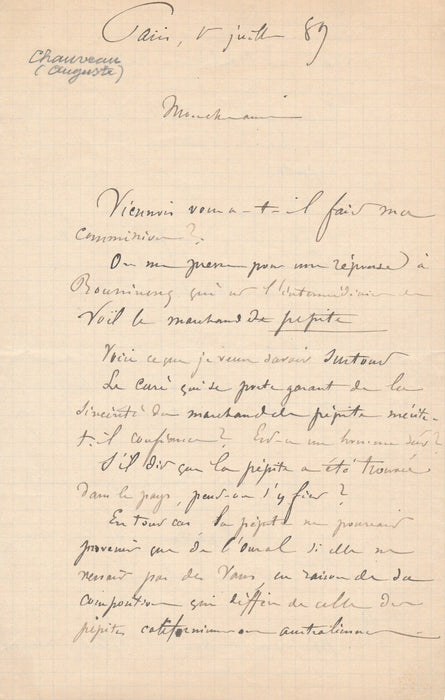 Paris, 5 juillet 89
Chauveau
(Auguste)
Mon cher ami
Viennois vous a-t-il fait ma
commission?
On me presse pour une réponse à
qui est l'intermédiaire de
Voil le marchand de pépite
Voici ce que je veux savoir surtout
Le curé qui se porte garant de la
sincérité du marchand de la pépite mérite-
t-il confiance? Est-ce un homme sûr?
S'il dit que la pépite a été trouvée
dans le pays, peut-on s'y fier?
En tout cas, la pépite ne pourrait
provenir que de l'oural si elle ne
venait pas des Vans, en raison de sa
composition qui diffère de celle des
pépites californiennes ou australiennes